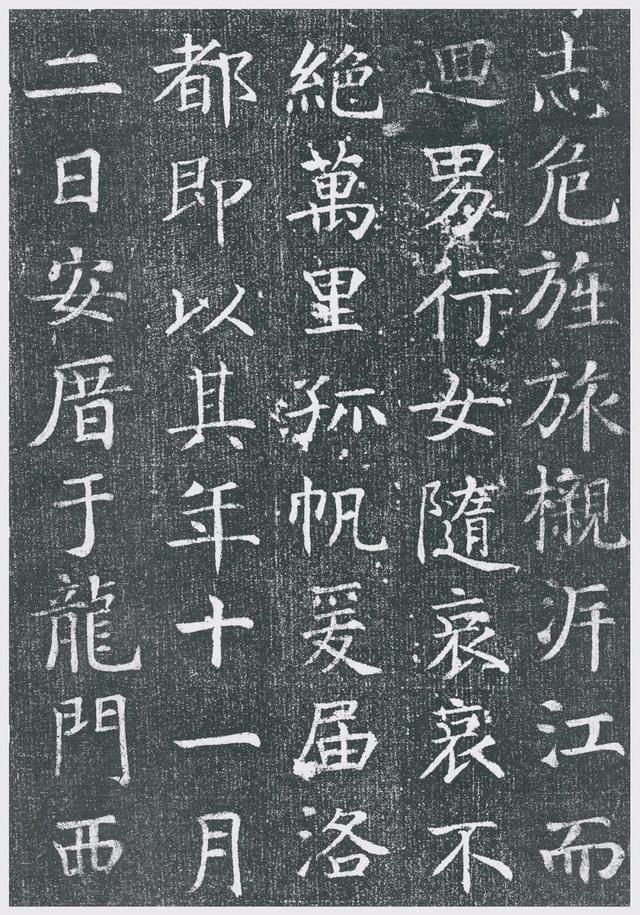 志危旌旅櫬泝江而
迴男行女隨哀哀不
絶萬里孤帆爰届洛
都即以其年十一月
二日安厝于龍門西